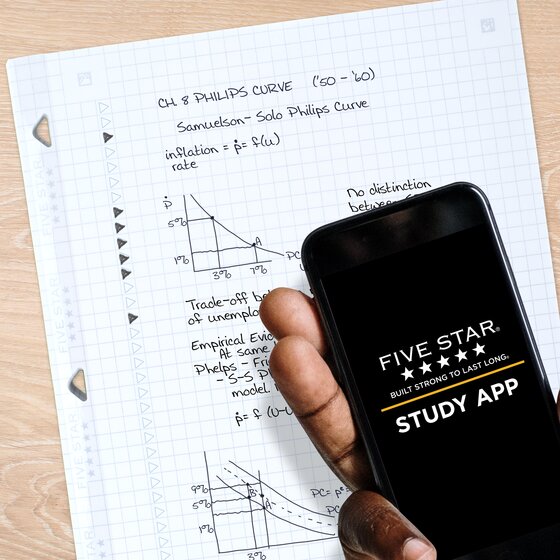 CH. 8 PHILIPS CURVE ('50 - '60)
Samuelson- Solo Philips Curve
inflation = ṗ= f(u)
rate
No distinction
ṗ
5%
A
PC
1%
3% 7%
Trade-off
of
Empirical
At same
Phelps -
- S-S
model.
ṗ= f (U-U
9%
B
5%
A
PC=
PC
1%
3%
FIVE STAR
FIVE STAR
FIVE STAR
FIVE STAR®
BUILT STRONG TO LAST LONG.
STUDY APP